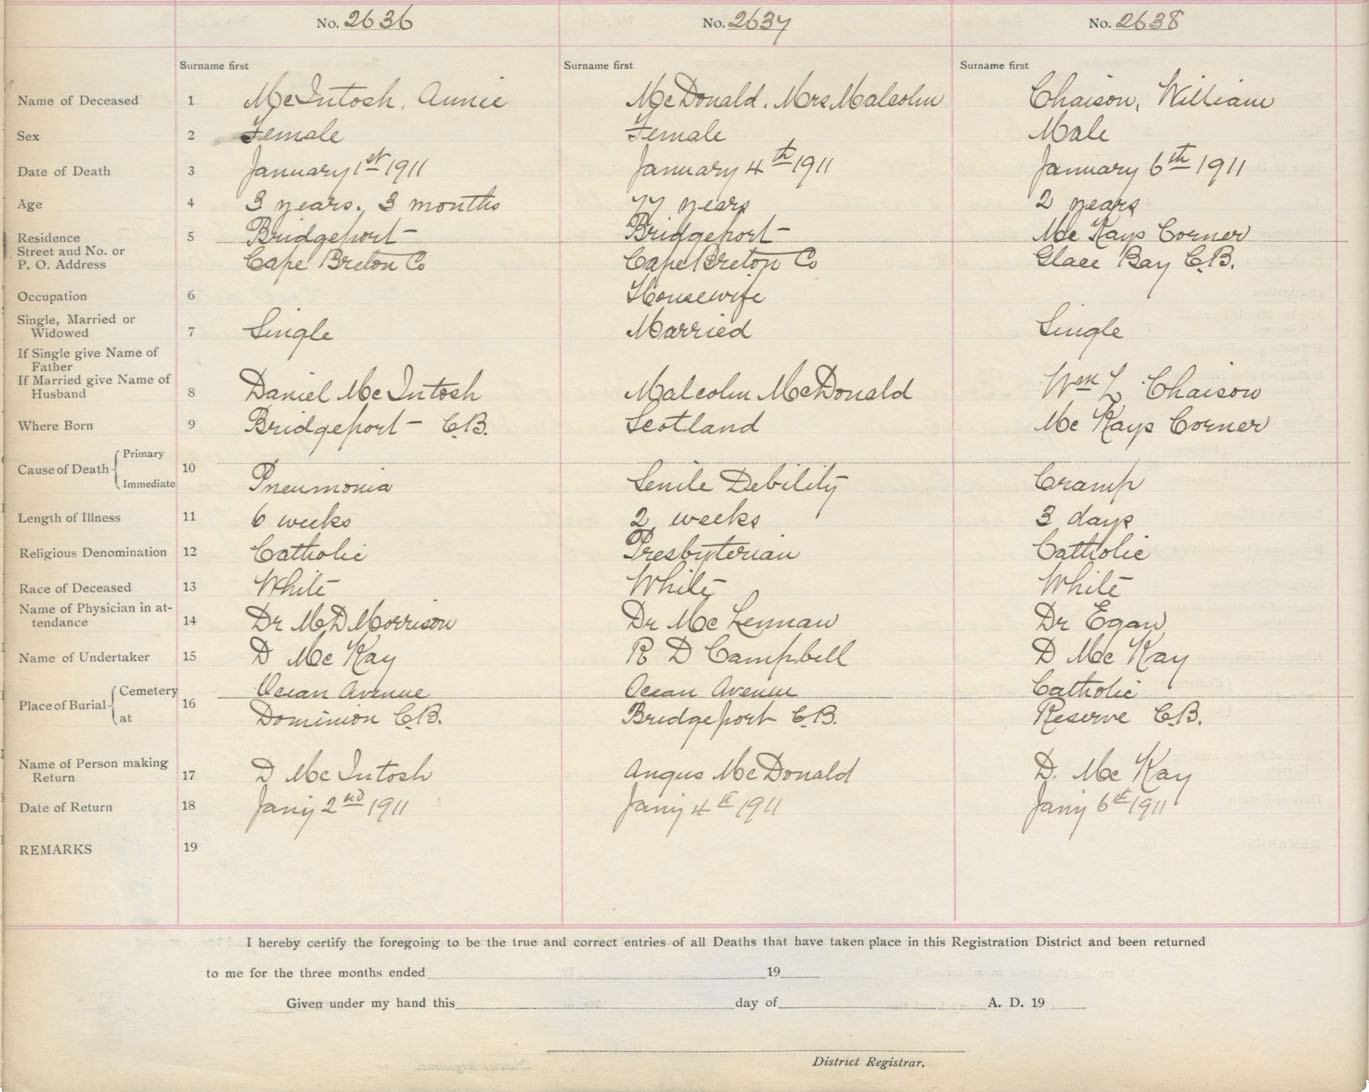 No. 2636 No. 2637 No. 2638
Surname first Surname first Surname first
Name of Deceased 1 McIntosh, Annie McDonald, Mrs Malcolm Chaison, William
Sex 2 Female Female Male
Date of Death 3 January 1st 1911 January 4th 1911 January 6th 1911
Age 4 3 years. 3 months 77 years 2 years
Residence 5 Bridgeport Bridgeport Mc Kays Corner
Street and No. or
P. O. Address Cape Breton Co Cape Breton Co Glace Bay C.B.
Occupation 6 Housewife
Single, Married or
Widowed 7 Single Married Single
If Single give Name of
Father
If Married give Name of
Husband 8 Daniel McIntosh Malcolm McDonald Wm L Chaison
Where Born 9 Bridgeport C.B. Scotland Mc Kays Corner
Cause of Death Primary
Immediate 10 Pneumonia Senile Debility Cramp
Length of Illness 11 6 weeks 2 weeks 3 days
Religious Denomination 12 Catholic Presbyterian Catholic
Race of Deceased 13 White White White
Name of Physician in at-
tendance 14 Dr M D Morrison Dr Mc Lennan Dr Egan
Name of Undertaker 15 D Mc Kay R D Campbell D Mc Kay
Place of Burial Cemetery 16 Ocean Avenue Ocean Avenue Catholic
at Dominion C.B. Bridgeport C.B. Reserve C.B.
Name of Person making
Return 17 D McIntosh Angus McDonald D. Mc Kay
Date of Return 18 Jany 2nd 1911 Jany 4th 1911 Jany 6th 1911
REMARKS 19
I hereby certify the foregoing to be the true and correct entries of all Deaths that have taken place in this Registration District and been returned
to me for the three months ended 19
Given under my hand this day of A. D. 19
District Registrar.